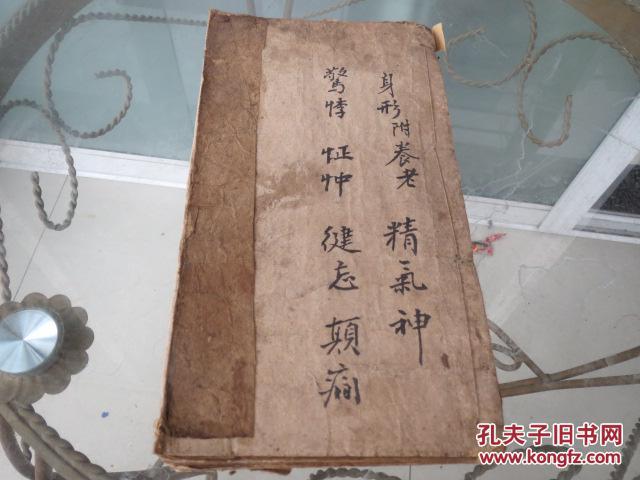 身形附養老 精氣神
驚悸 怔忡 健忘 顛癇
孔夫子旧书网
www.kongfz.com